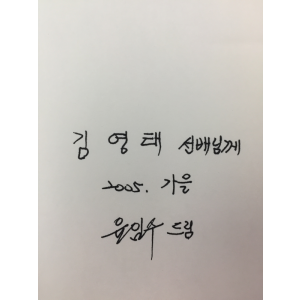 김영태 선배님께
2005. 가을
윤임수 드림